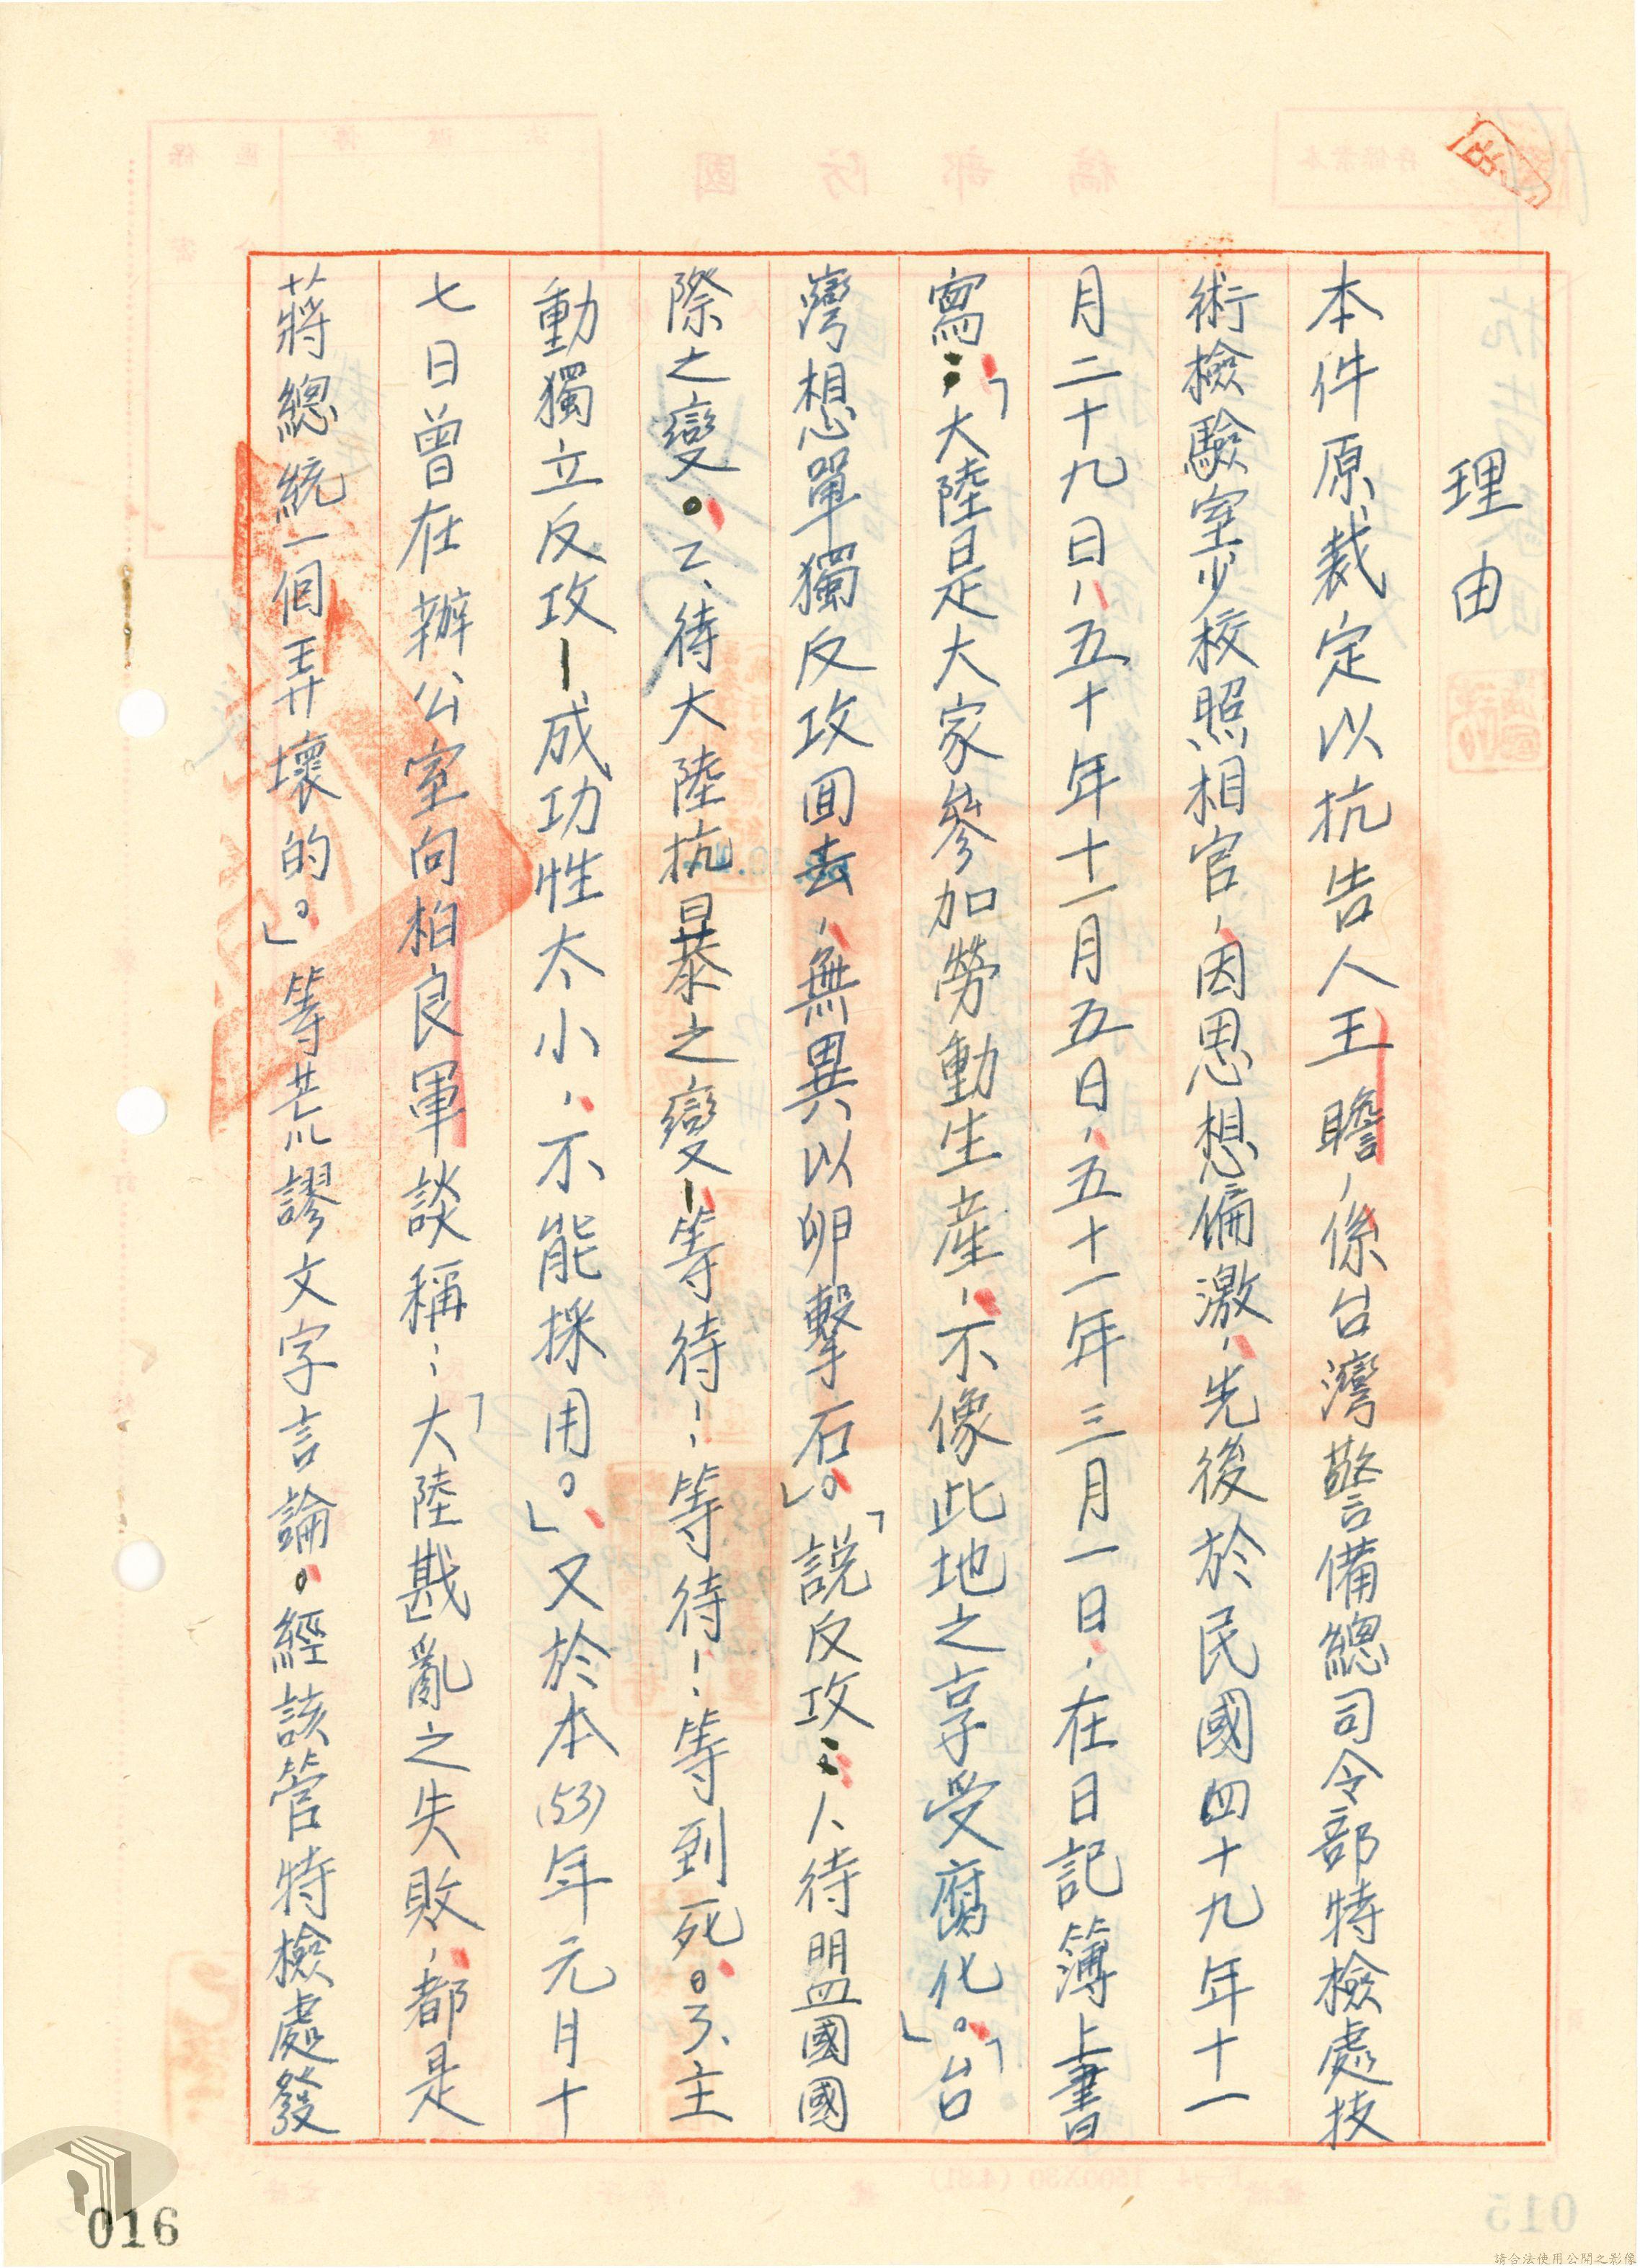 理由
本件原裁定以抗告人王瞻，係台灣警備總司令部特檢處技
術檢驗室少校照相官，因思想偏激，先後於民國四十九年十一
月二十九日，五十年十一月五日，五十一年三月一日，在日記簿上書
寫：「大陸是大家參加勞動生產，不像此地之享受腐化。」「台
灣想單獨反攻回去，無異以卵擊石。」「說反攻：1、待盟國國
際之變。2、待大陸抗暴之變－等待！等待！等到死。3、主
動獨立反攻－成功性太小，不能採用。」又於本(53)年元月十
七日曾在辦公室向柏良軍談稱：「大陸戡亂之失敗，都是
蔣總統一個弄壞的。」等荒謬文字言論。經該管特檢處發
016
請合法使用公開之影像